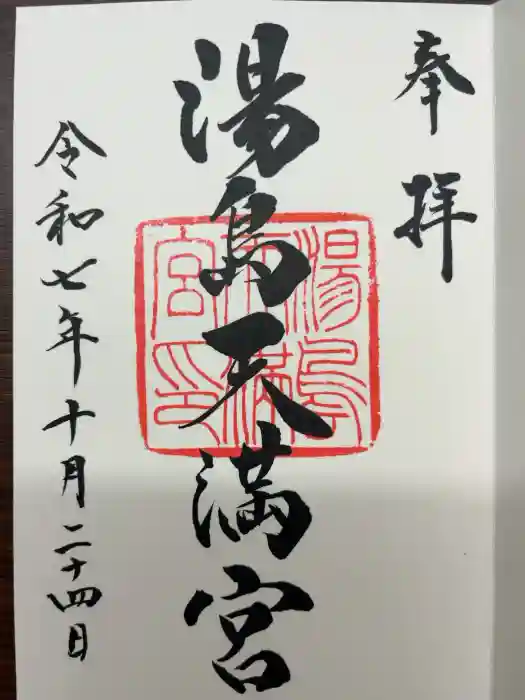 奉拝
湯島天満宮
湯島天満宮印
令和七年十月二十四日